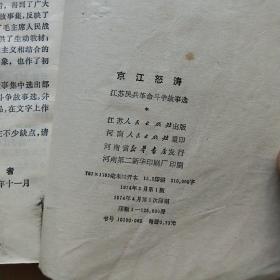 得到了广大
故事集，反映了
了毛主席人民战
供了生动教材；
主义相结合的
象，也作了初
事集中选出部
斗争故事选，并
品，在文字上作
在不少缺点，请
者
年十一月
京江怒涛
江苏民兵革命斗争故事选
江苏人民出版社出版
河南人民出版社重印
河南省新华书店发行
河南第二新华印刷厂印刷
787×1092毫米32开本
1974年3月第1版
1974年4月第1次印刷